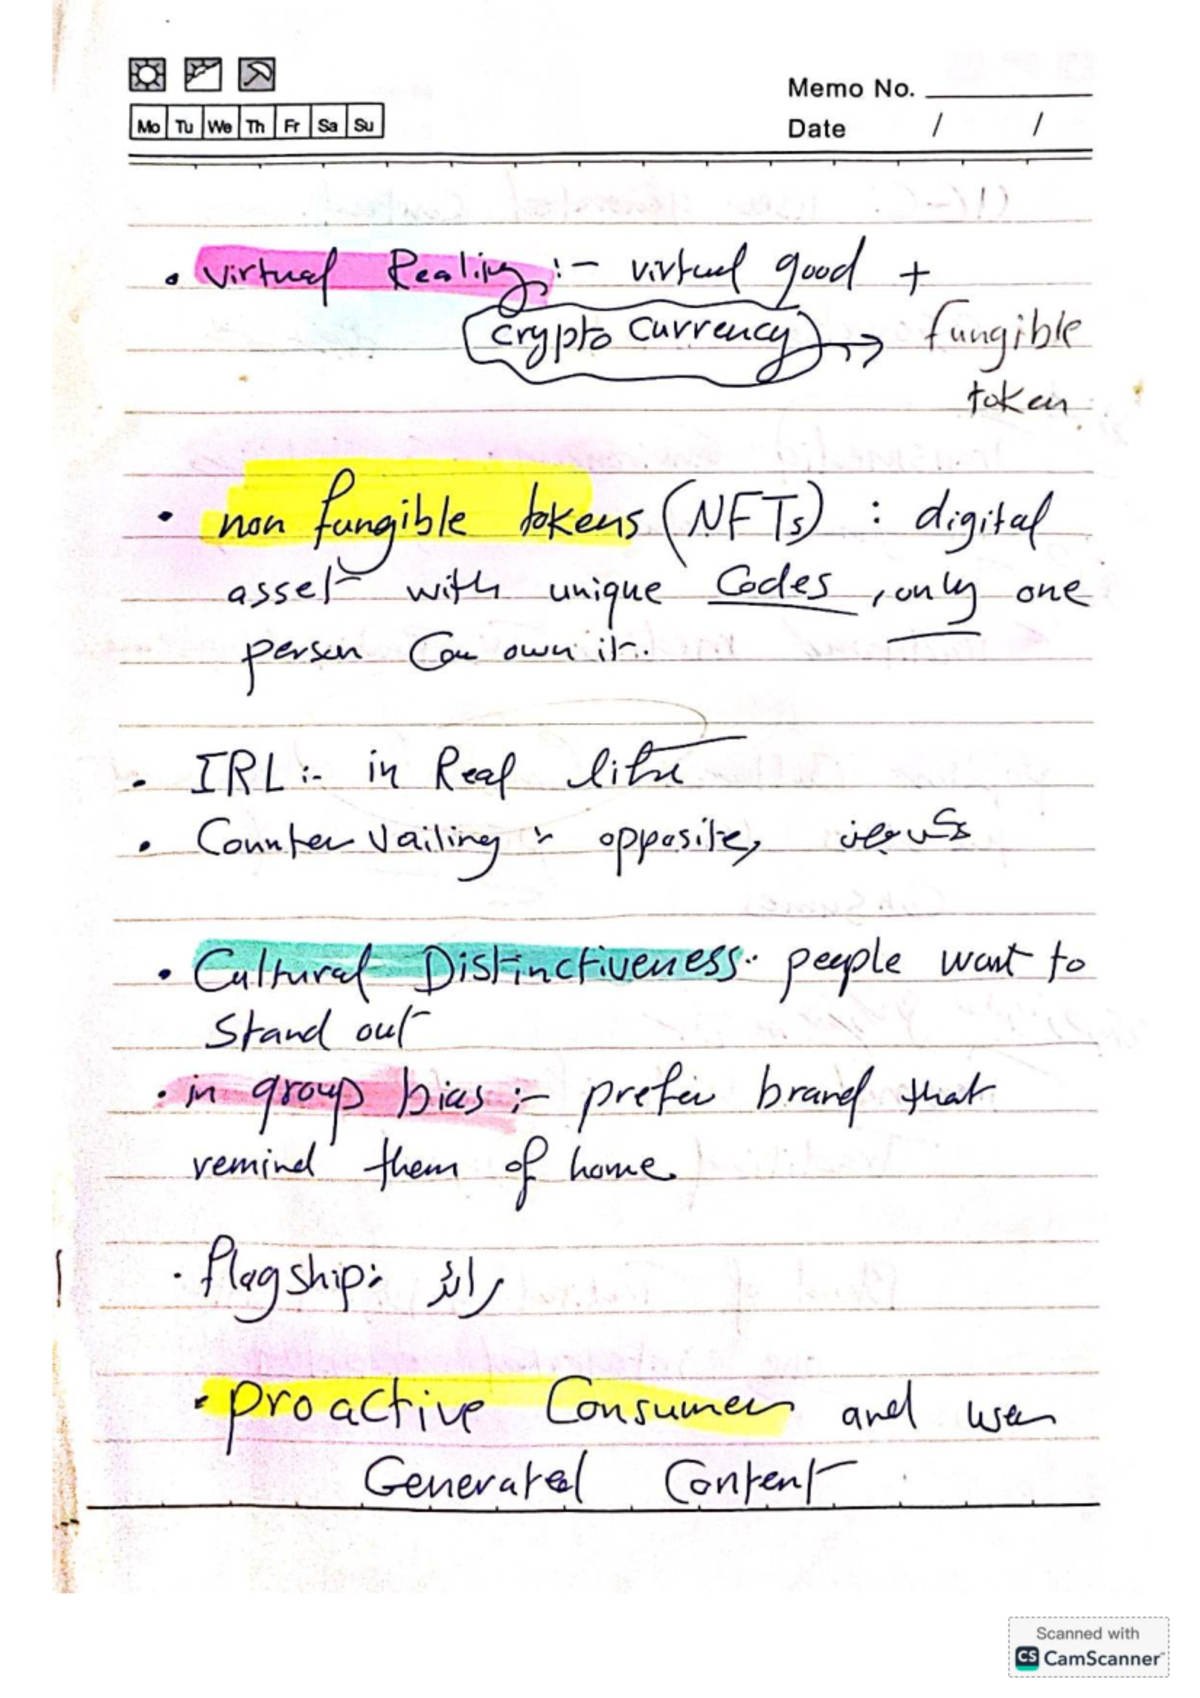 Memo No.
Mo Tu We Th Fr Sa Su
Date / /
• Virtual Reality :- virtual good +
crypto currency → fungible
token
• non fungible tokens (NFTs) : digital
asset with unique Codes , only one
person Can own it.
• IRL :- in Real
• Counter Vailing :- opposite,
• Cultural Distinctiveness : people want to
Stand out
• in group bias :- prefer brand that
remind them of home.
• flagship : رائد
• proactive Consumer and user
Generated Content
Scanned with
CS CamScanner